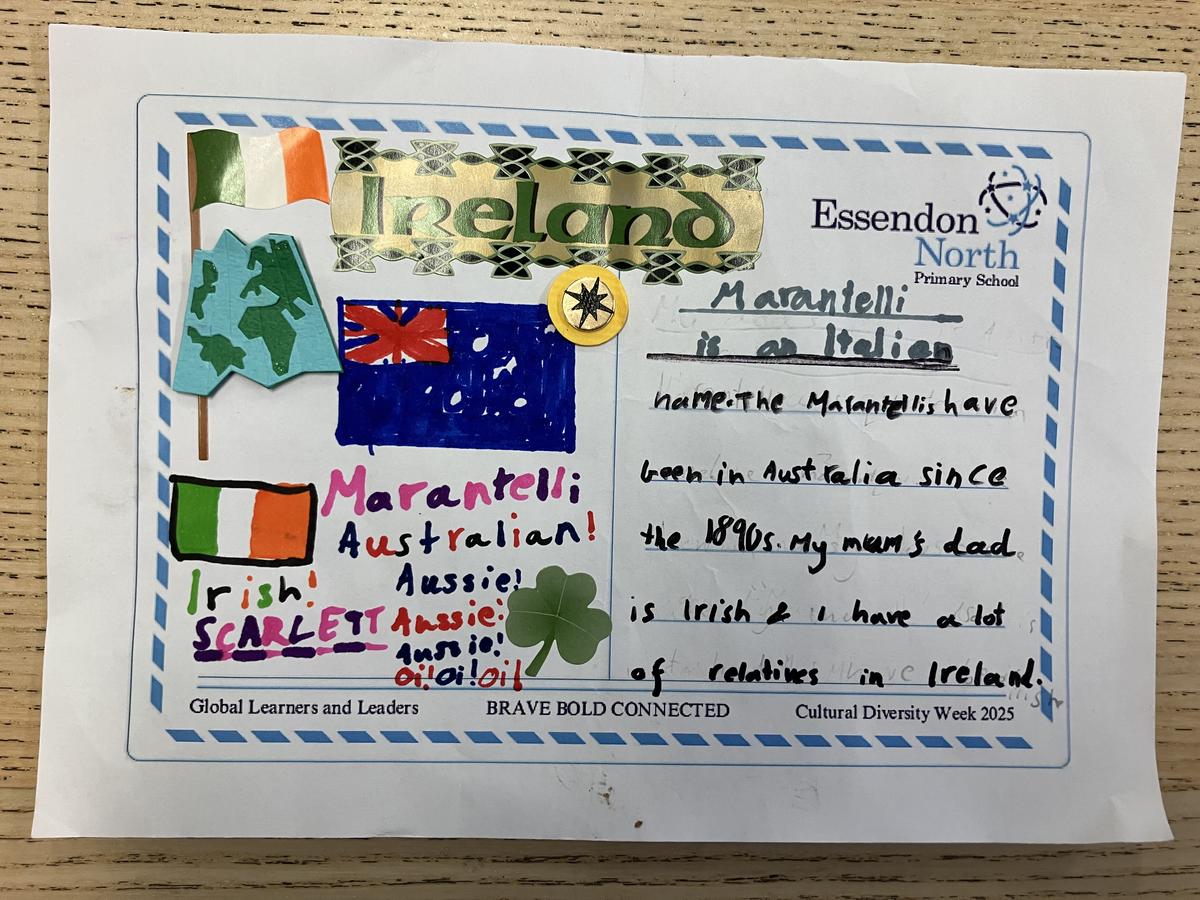 Ireland
Essendon
North
Primary School
Marantelli
is an Italian
name. The Marantellis have
been in Australia since
the 1890s. My mum's dad
is Irish & I have a lot
of relatives in Ireland.
Marantelli
Australian!
Aussie!
Aussie!
Aussie!
Oi! Oi! Oi!
Irish!
SCARLETT
Global Learners and Leaders
BRAVE BOLD CONNECTED
Cultural Diversity Week 2025